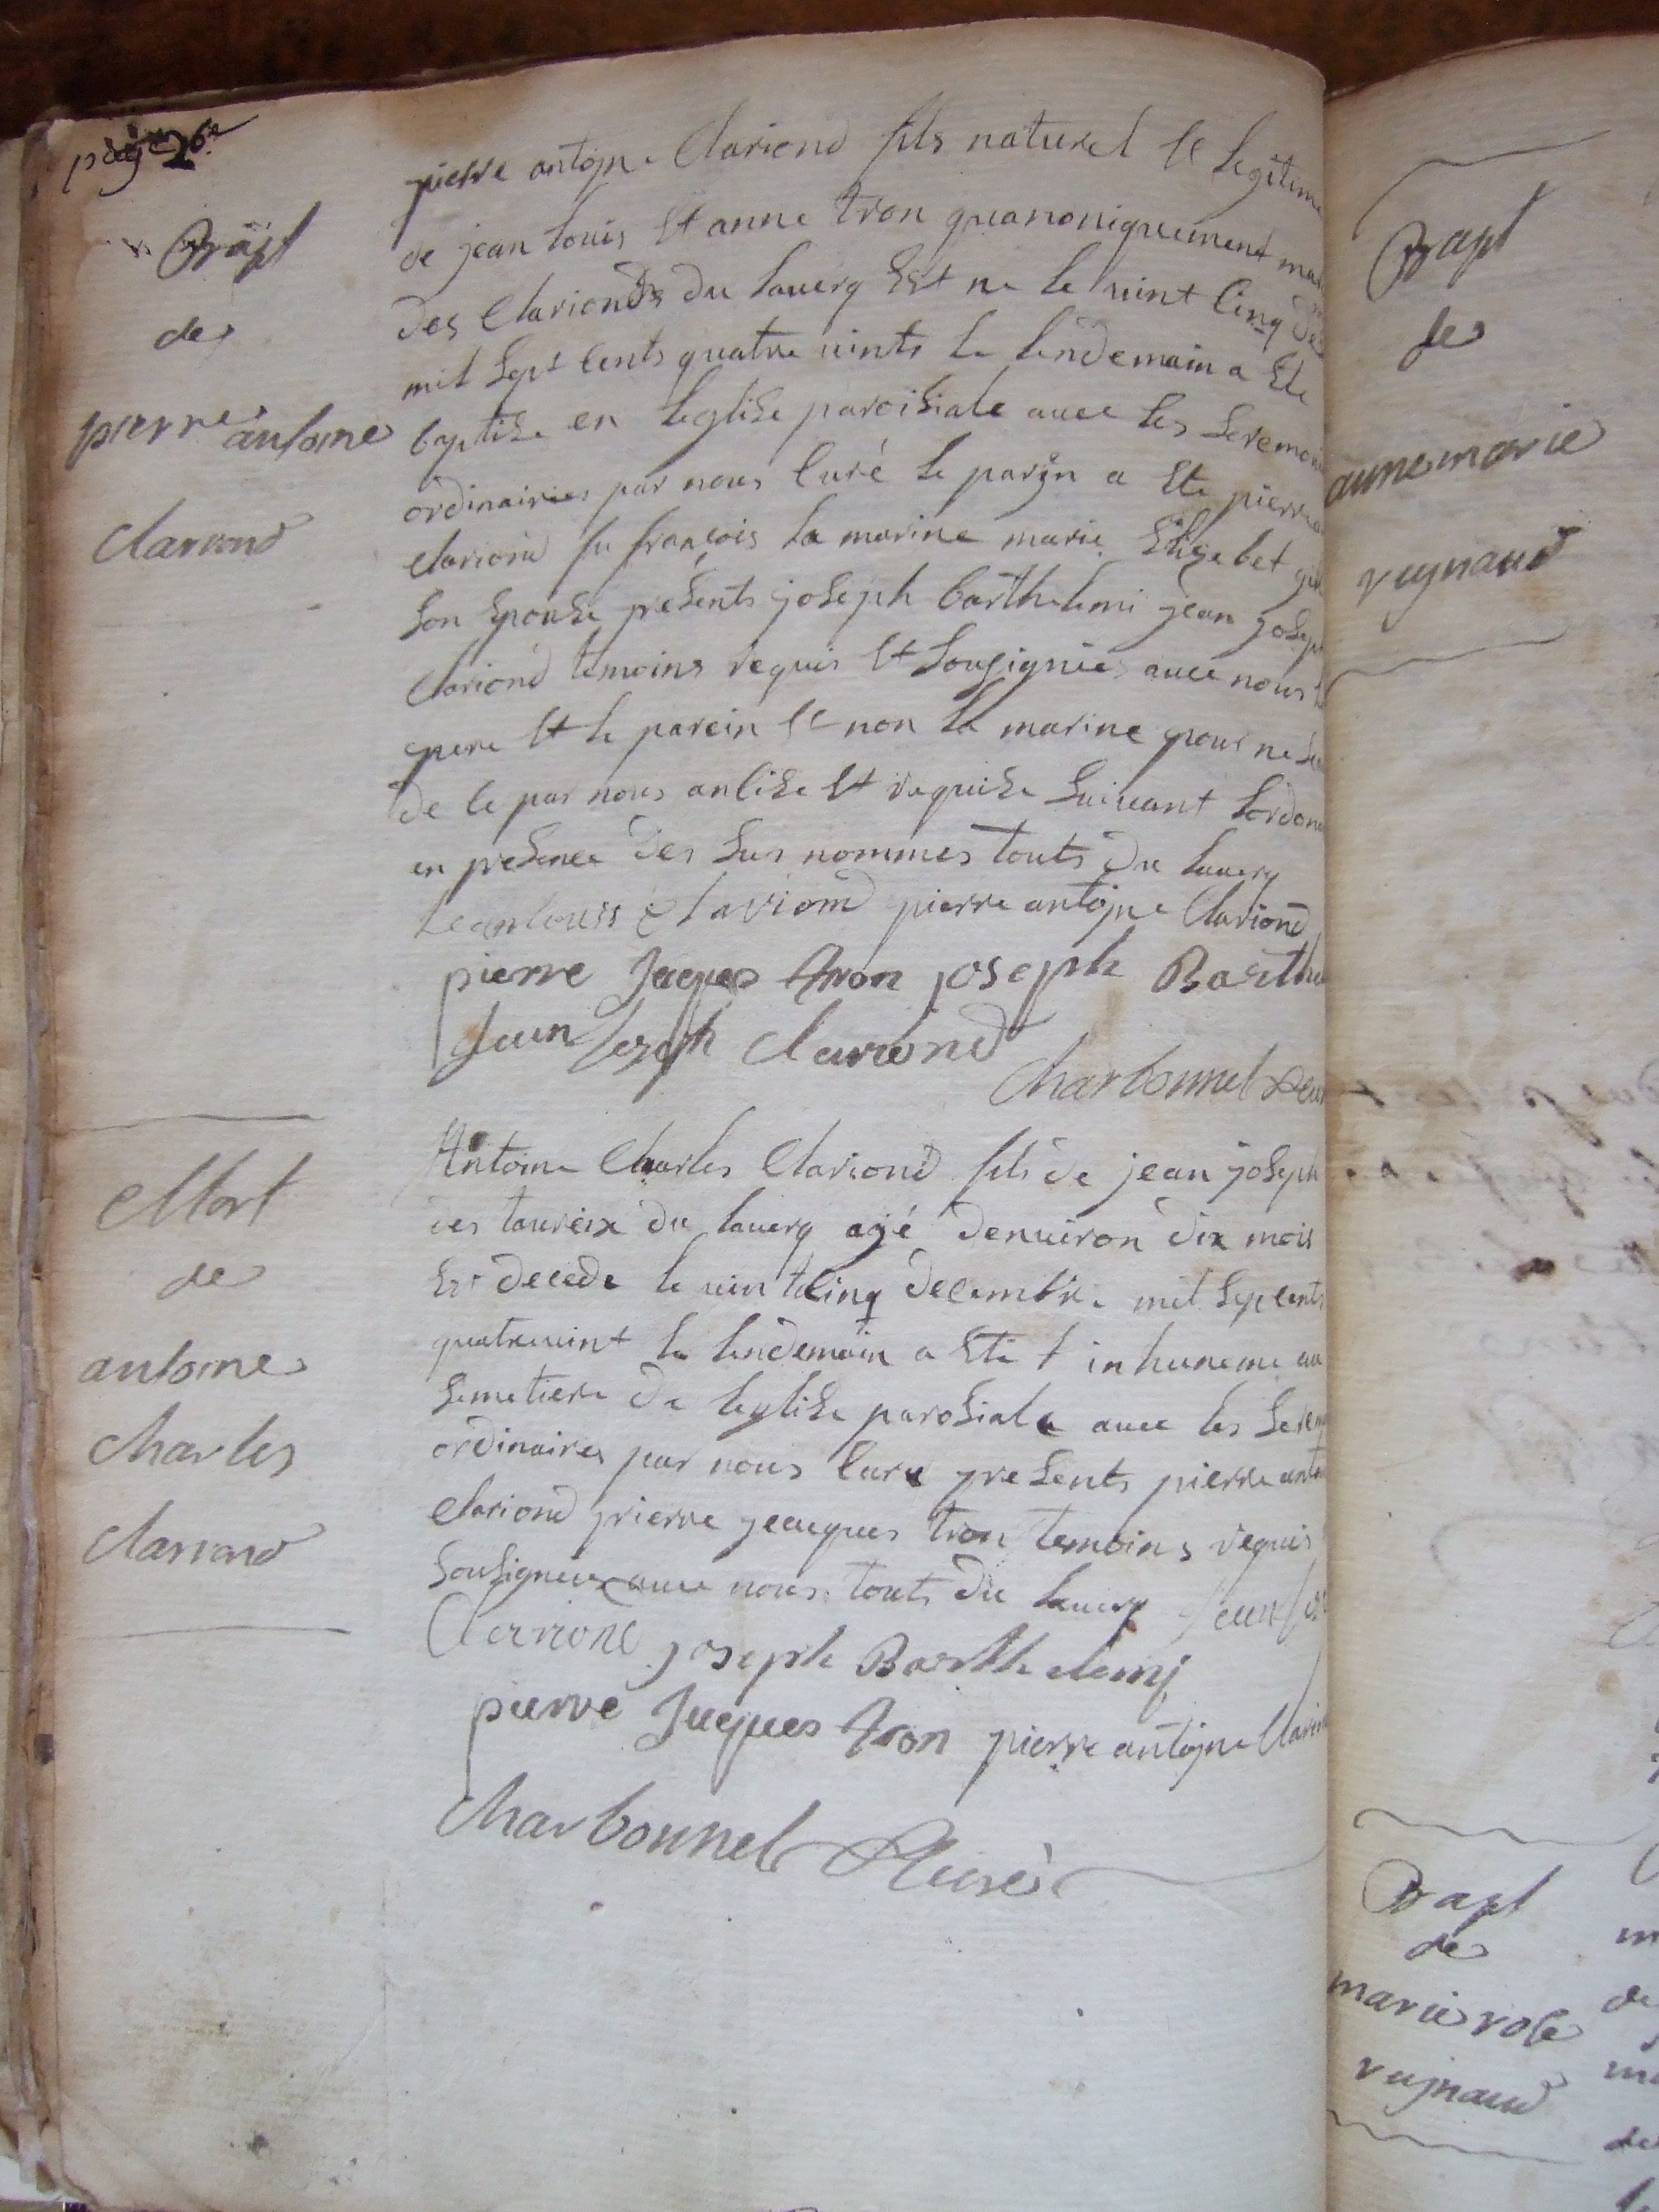 page 26e
Bapt
de
pierre antoine
clariond
pierre antojne Clariond fils naturel et legitime
de jean louis et anne tron quanoniquement mar
des Clarionds du lauerq est ne le vint cinq de
mil sept cents quatre vints le lendemain a ete
baptise en leglise paroisiale auec les seremoni
ordinaires par nous curé le parin a ete pierre
clariond fu françois la marine marie elizebet
son epouse presents joseph barthelemi jean joseph
clariond temoins requis et sousignies auec nous
pere et le parein et non la marine pour ne
de ce par nous anlise et requise suiuant lordon
en presence des sus nommes touts du lauerq
Jeanlouis Clariond pierre antojne Clariond
pierre Jaques tron joseph Barthe
Jean Joseph Clariond
Charbonnel
Mort
de
antoine
charles
clariond
Antoine Charles Clariond fils de jean joseph
des taureix du lauerq agé denuiron dix mois
est decede le vintcinq decembre mil sepcents
quatreuint le lendemain a ete t inhumeme au
semetiere de leglise parosiale auec les serem
ordinaires par nous cure presents pierre anto
clariond pierre jeacques tron temoins requis
sousigneix auec nous touts du lauerq Jean Jos
Clarriond joseph Barthelemj
pierre Jaques tron pierre antojne Clario
Charbonnel Curé
Bapt
de
anne marie
reynaud
Bapt
de
marie rose
reynaud